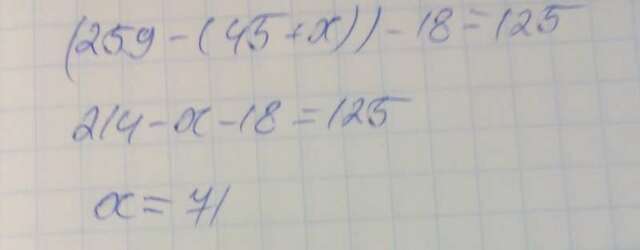 (259-(45+x))-18=125
214-x-18=125
x=71